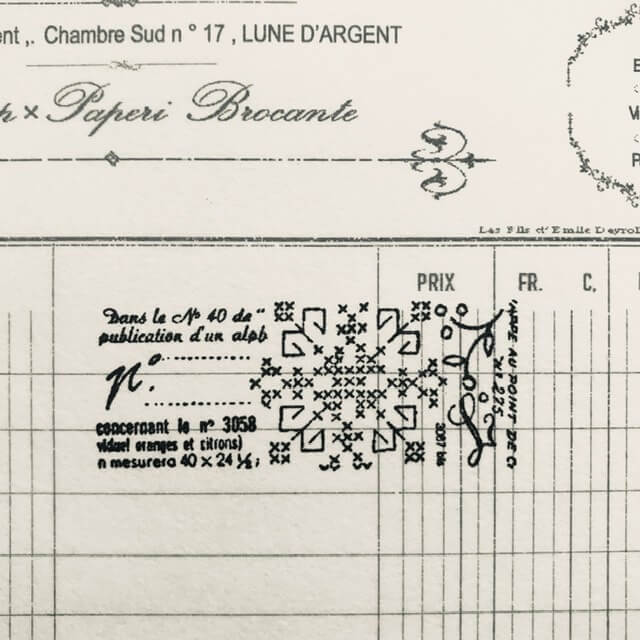 ent ,. Chambre Sud n ° 17 , LUNE D'ARGENT
× Paperi Brocante
Les Fils d'Emile Deyrol
PRIX FR. C.
Dans le Nº 40 de "
publication d'un alph
nº.
concernant le nº 3058
viduel oranges et citrons)
n mesurera 40 × 24 ½ ;
3087 bis
AU POINT DE